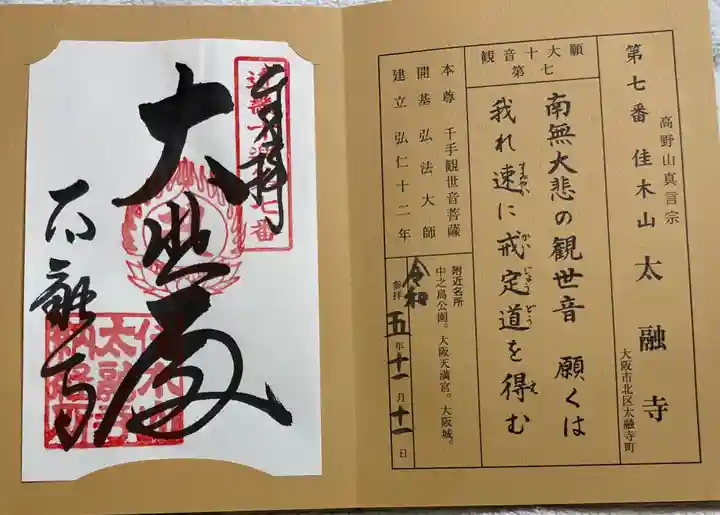 第七番 佳木山 太融寺
高野山真言宗
大阪市北区太融寺町
観音十大願
第七
南無大悲の観世音 願くは
我れ速に戒定道を得む
すみやか
かいじょうどう
え
本尊 千手観世音菩薩
開基 弘法大師
建立 弘仁十二年
附近名所
中之島公園。大阪天満宮。大阪城。
参拝 令和五年十一月十一日
奉拝
大悲殿
太融寺